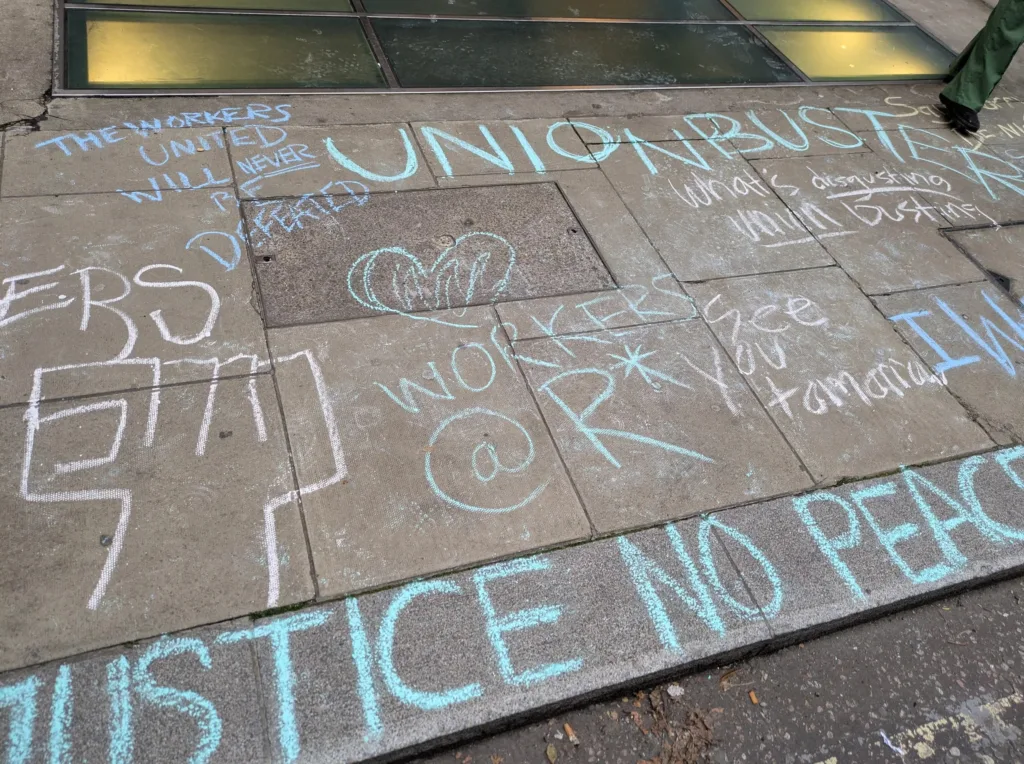 THE WORKERS
UNITED
WILL NEVER
BE
DEFEATED
UNIONBUSTERS
What's disgusting
union busting
ERS
WORKERS
@ R*
See
You
tomorrow
IW
JUSTICE NO PEACE